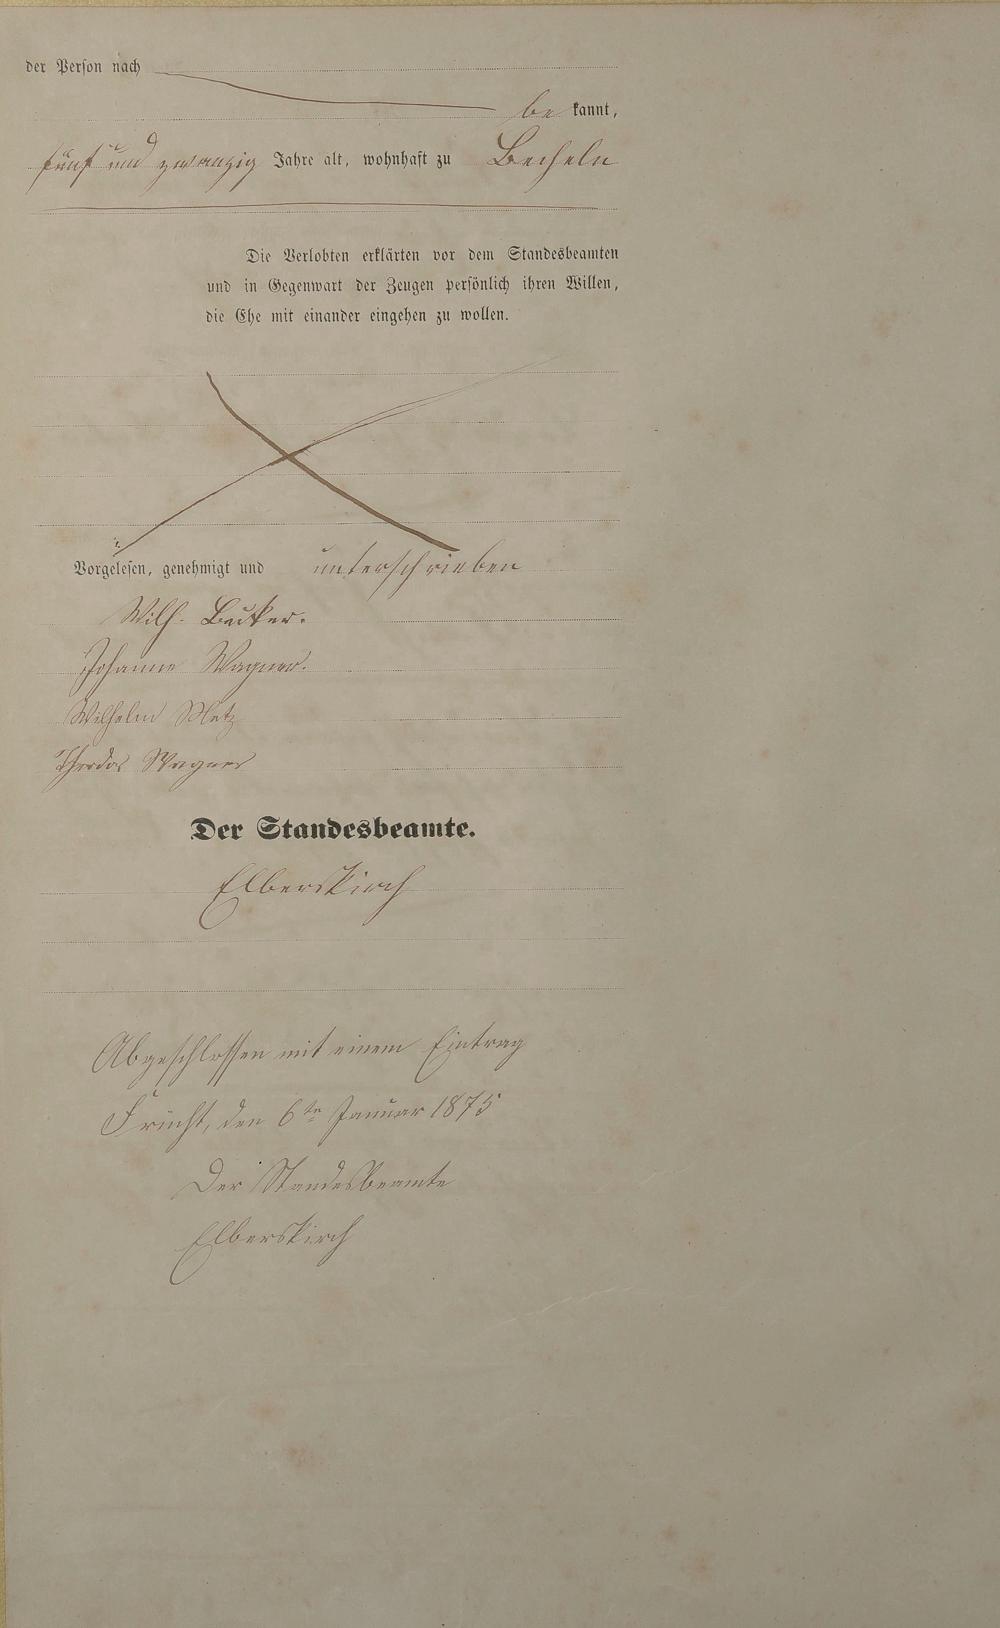 der Person nach
be kannt,
fünf und zwanzig Jahre alt, wohnhaft zu Becheln
Die Verlobten erklärten vor dem Standesbeamten
und in Gegenwart der Zeugen persönlich ihren Willen,
die Ehe mit einander eingehen zu wollen.
Vorgelesen, genehmigt und unterschrieben
Wilh. Becker.
Johanne Wagner.
Wilhelm Metz
Theodor Wagner
Der Standesbeamte.
Elberskirch
Abgeschlossen mit einem Eintrag
Frücht, den 6ten Januar 1875
Der Standesbeamte
Elberskirch